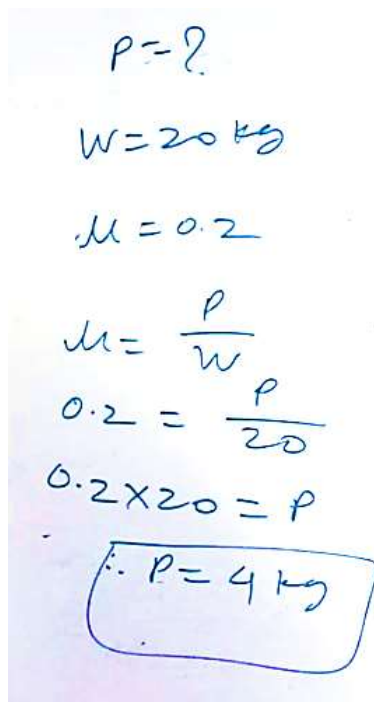 P = ?
W = 20 kg
μ = 0.2
μ = P / W
0.2 = P / 20
0.2 × 20 = P
∴ P = 4 kg